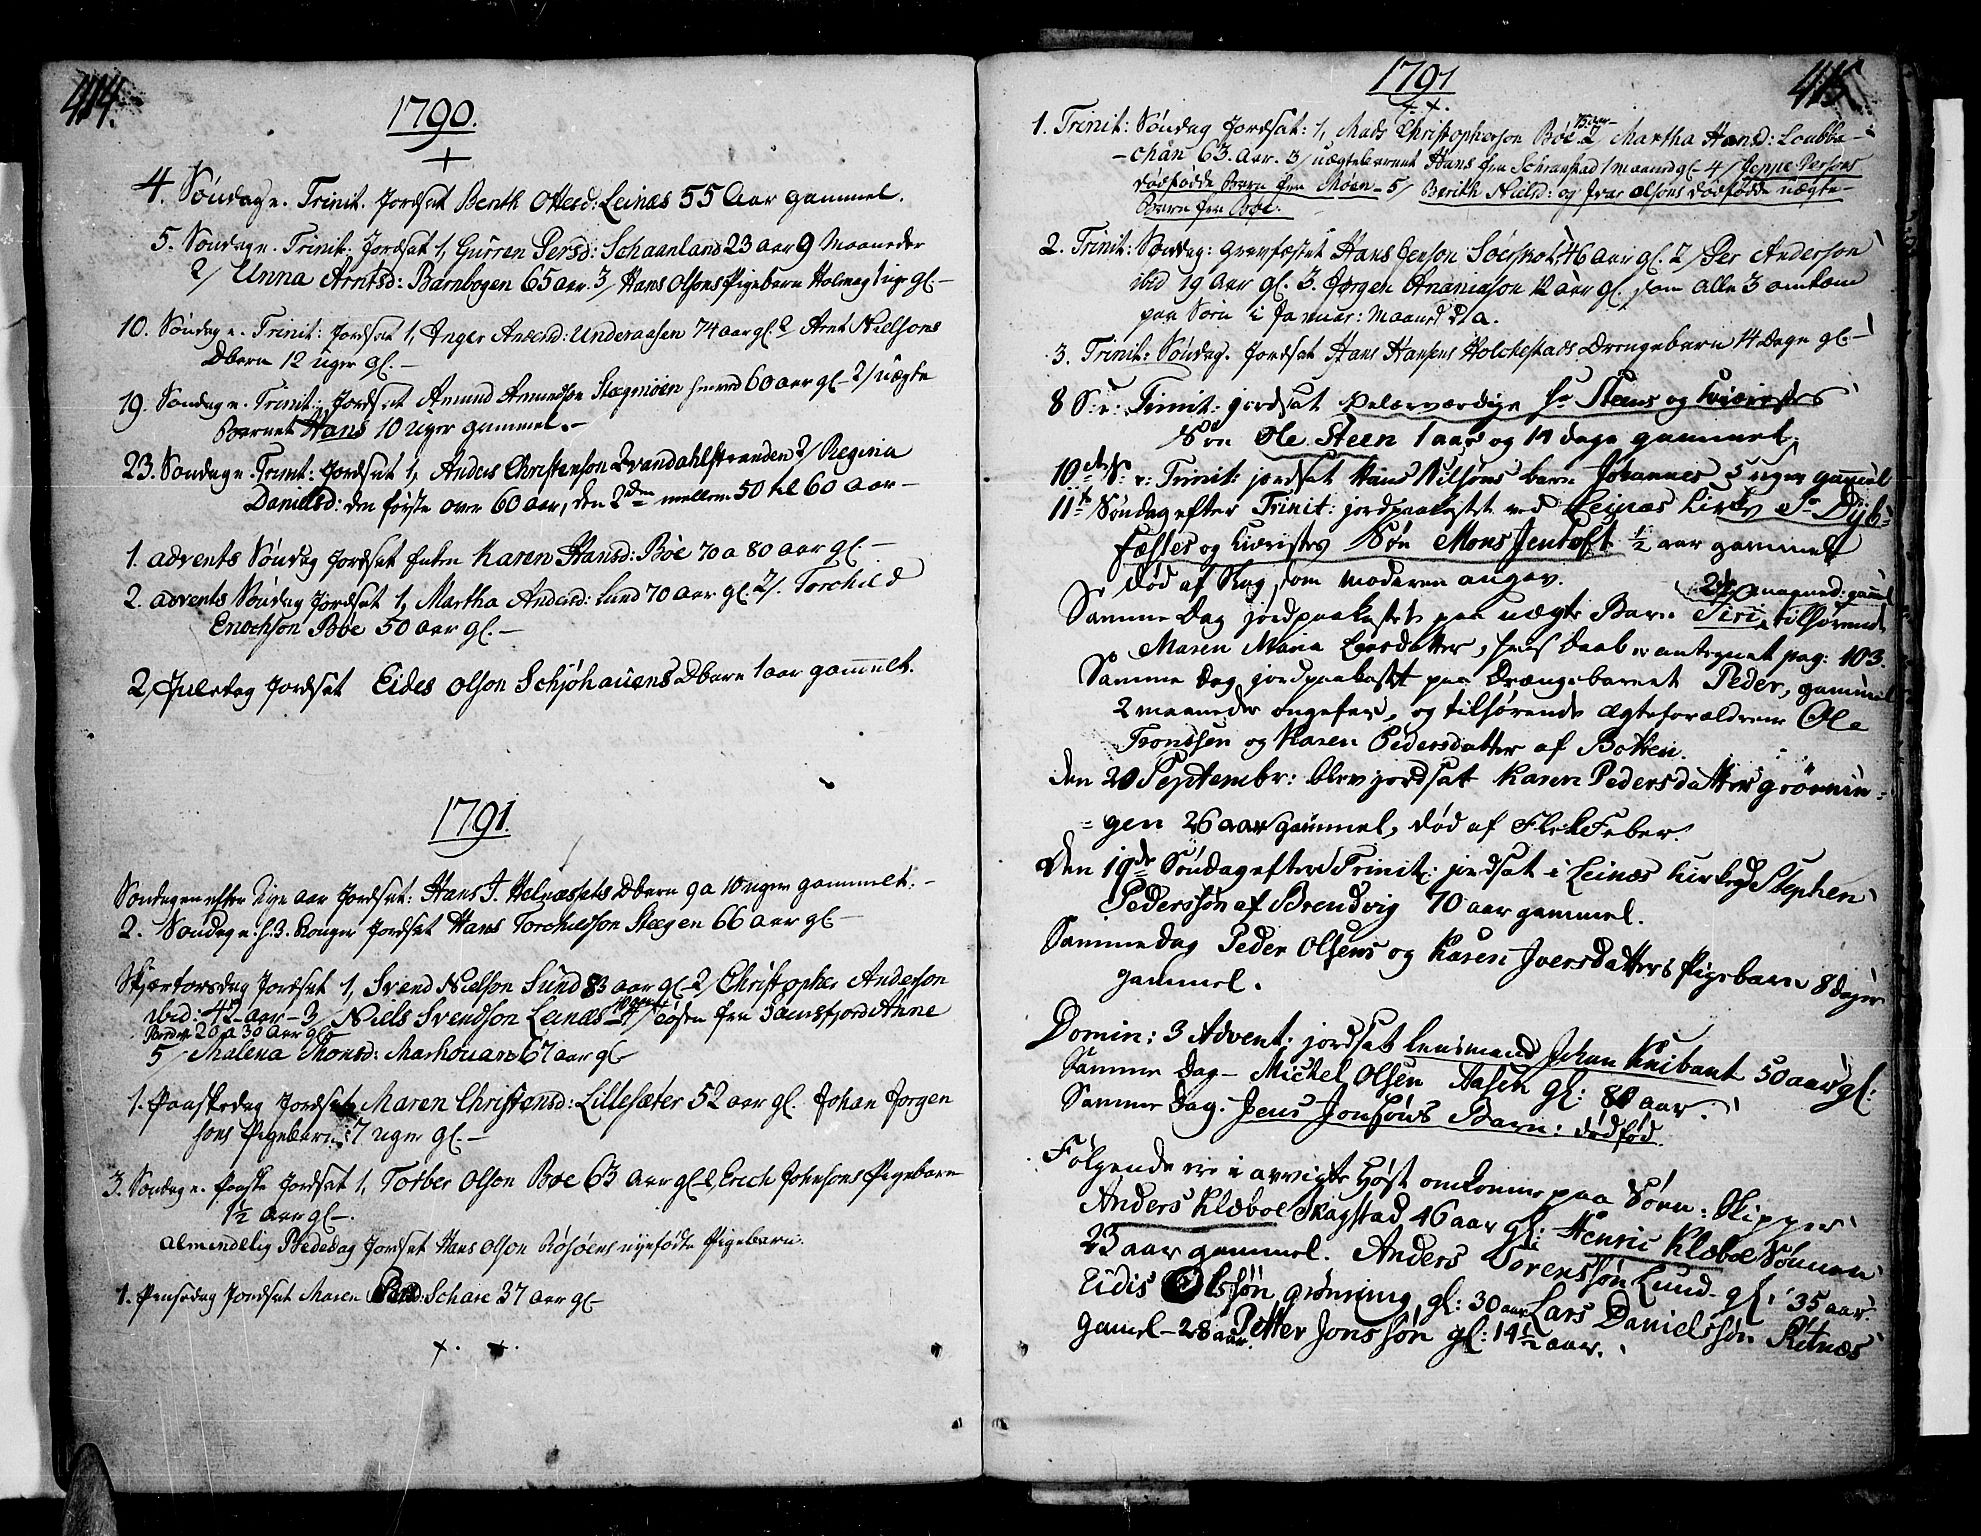 414.
1790.
+
4. Søndag e. Trinit. Jordsat Berith Ottesd: Leinæs 55 Aar gammel.
5. Søndag e. Trinit. Jordsat 1, Gurren Persd: Schaanland 23 aar 9 Maaneder
2/ Unna Arntsd: Barnbogen 65 aar. 3/ Hans Olsons Pigebarn Holmag 1 uge gl. -
10. Søndag e. Trinit: Jordsat 1, Anger Andersd: Underaasen 74 aar gl. 2 Arnt Nielsons
Dbarn 12 uger gl. -
19. Søndag e. Trinit: Jordsat Amund Amundsen Stegmoen 60 aar gl - 2/ uægte
Barnet Hans 10 uger gammel. -
23. Søndag e. Trinit: Jordsat 1, Anders Christenson Evandahlstranden 2/ Regina
Danielsd: den første over 60 aar, den 2den mellem 50 til 60 aar -
1. advents Søndag Jordsat Enken Karen Hansd: Bøe 70 a 80 aar gl. -
2. advents Søndag Jordsat 1, Martha Andersd: Lund 70 aar gl. 2/. Torchild
Enochson Bøe 50 aar gl. -
2 Juledag Jordsat Eides Olson Schjøhauens Dbarn 1 aar gammelt.
1791.
Søndagen efter Nye aar Jordsat: Hans J. Helnæssets Dbarn 9 a 10 uger gammelt. -
2. Søndag e. H. 3. Konger Jordsat Hans Torchildson Stegen 66 aar gl -
Skjærtorsdag Jordsat 1, Svend Nielson Sund 83 aar gl - 2/ Christopher Anderson
ibid: 42 aar - 3/ Niels Svendson Leinæs 4/ fra Saursfjord Anne
20 a 30 aar gl.
5/ Malena Monsd: Markouar 67 aar gl
1. Paaskedag Jordsat Maren Christensd: Lillesæter 52 aar gl. Johan Jorgen
sons Pigebarn 7 uger gl. -
3. Søndag e. Paaske Jordsat 1, Torber Olson Bøe 63 aar gl 2, Erich Johnsons Pigebarn
1½ aar gl -.
Almindelig Bededag Jordsat Hans Olson Røsøens nyefødte Pigebarn.
1. Pinsedag Jordsat Maren Schaie 37 aar gl
+. +.
415.
1791
+.
1. Trinit: Søndag Jordsat: 1, Mads Christopherson Bøe 2/ Martha Hansd: Loubba-
-chan 63. aar. 3/ uægtebarnet Hans fra Schranstad 1 maaned gl - 4/ Jeppe Persons
dødfødde Barn fra Møen - 5/ Berith Nielsd: og Ivar Olsons dødfødde uægte
Barn fra Bøe.
2. Trinit: Søndag: gravfæstet Hans Jenson Søeskot 46 aar gl. 2/ Per Anderson
ibid 19 aar gl. 3. Jørgen Ananiason 12 aar gl. som alle 3 omkom
paa Søen i Januar: maaned d: a.
3. Trinit: Søndag. Jordsat Hans Hansens Holckestads Drengebarn 14 Dage gl -
8 S: e: Trinit: jordsat Velærværdige Hr Steens og Kiæristes
Søn Ole Steen 1 aar og 14 dage gammel.
10de S: e: Trinit: jordsat Hans Nilsøns barn Johannes 5 uger gammel
11te Søndag efter Trinit: jordpaakastet ved Leinæs Kirke Sr Dyb-
fæstes og Kiæristes Søn Mons Jentoft ½ aar gammel
død af Kig, som moderen angav.
Samme Dag jordpaakastet paa uægte Barn Siri, tilhørende
2de maaned: gaml
Maren Maria Larsdatter, hvis daab er antegnet pag: 103.
Samme Dag jordpaakast paa Drængebarnet Peder, gammel
2 maaneder ongefer, og tilhørende ægteforældrene Ole
Tronssen og Karen Pedersdatter af Botten.
den 20 Septembr: blev jordsat Karen Pedersdatter grønnin-
-gen 26 aar gammel, død af Flek Feber.
Den 19de Søndag efter Trinit: jordsat i Leinæs Kirke Stephen
Pederssøn af Brendvig 70 aar gammel.
Samme dag Peder Olsens og Karen Joersdatters Pigebarn 8 dager
gammel.
Domin: 3 Advent: jordsat Lensmand Johan Knibant 50 aar gl:
Samme Dag - Michel Olsen Aasen gl: 80 aar.
Samme Dag. Jens Jonssøns Barn: dødfød.
Følgende ere i avvigte Høst omkomne paa Søen: Skipper
Anders Klæboe Skagstad 46 aar gl: Henric Klæboe Sønnen
23 aar gammel. Anders Sørenssøn Lund - gl: 35 aar.
Eidis Olssøn grønning gl: 30 aar Lars Danielssøn Ritnæs
gamel - 28 aar. Petter Jonssøn gl: 14½ aar.